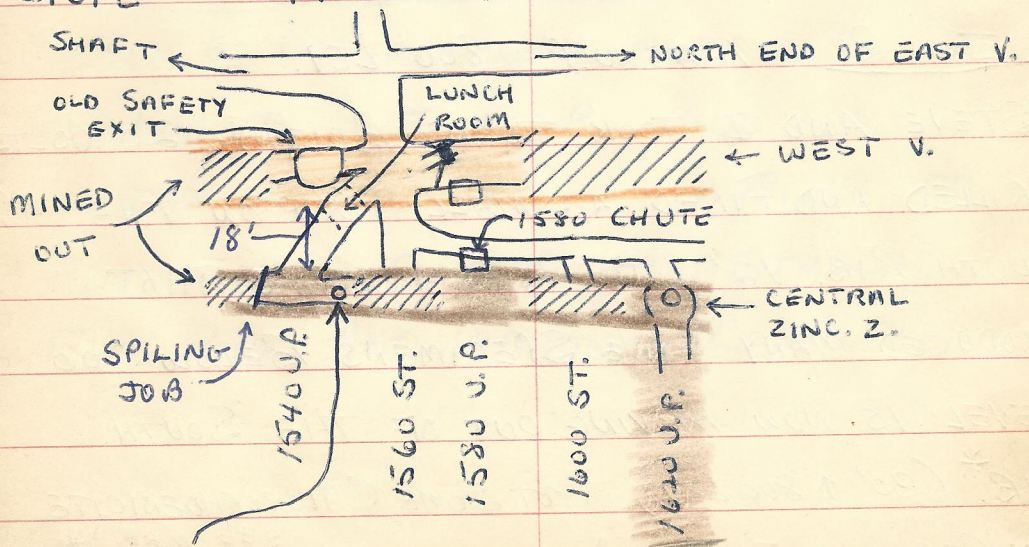 SHAFT
NORTH END OF EAST V.
OLD SAFETY
EXIT
LUNCH
ROOM
WEST V.
MINED
OUT
18'
1580 CHUTE
CENTRAL
ZINC. Z.
SPILING
JOB
1540 U.P.
1560 ST.
1580 U.P.
1600 ST.
1620 U.P.